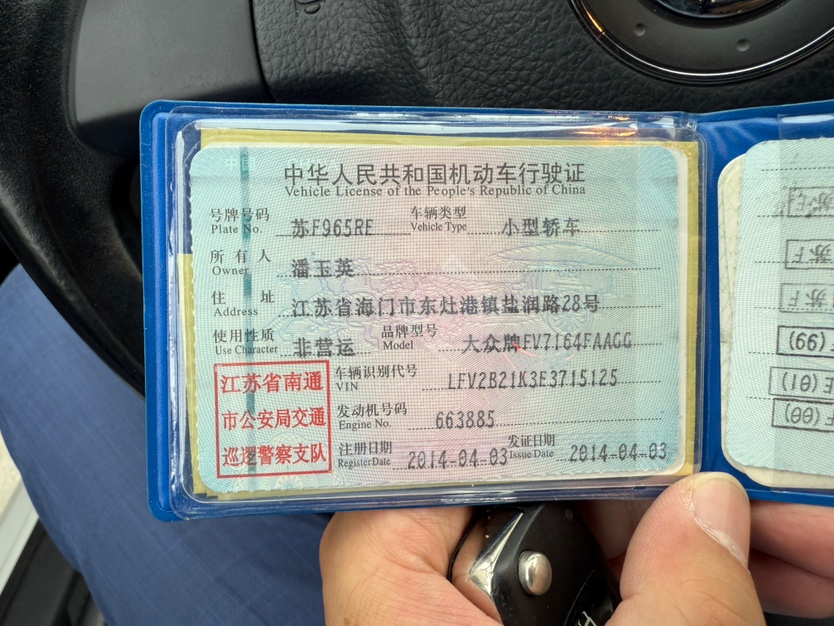 中华人民共和国机动车行驶证
Vehicle License of the People's Republic of China
号牌号码 苏F965RE 车辆类型 小型轿车
Plate No. Vehicle Type
所有人 潘玉英
Owner
住址 江苏省海门市东灶港镇盐润路28号
Address
使用性质 非营运 品牌型号 大众牌FV7164FAAGG
Use Character Model
江苏省南通
市公安局交通
巡逻警察支队
车辆识别代号 LFV2B21K3E3715125
VIN
发动机号码 663885
Engine No.
注册日期 2014-04-03 发证日期 2014-04-03
Register Date Issue Date